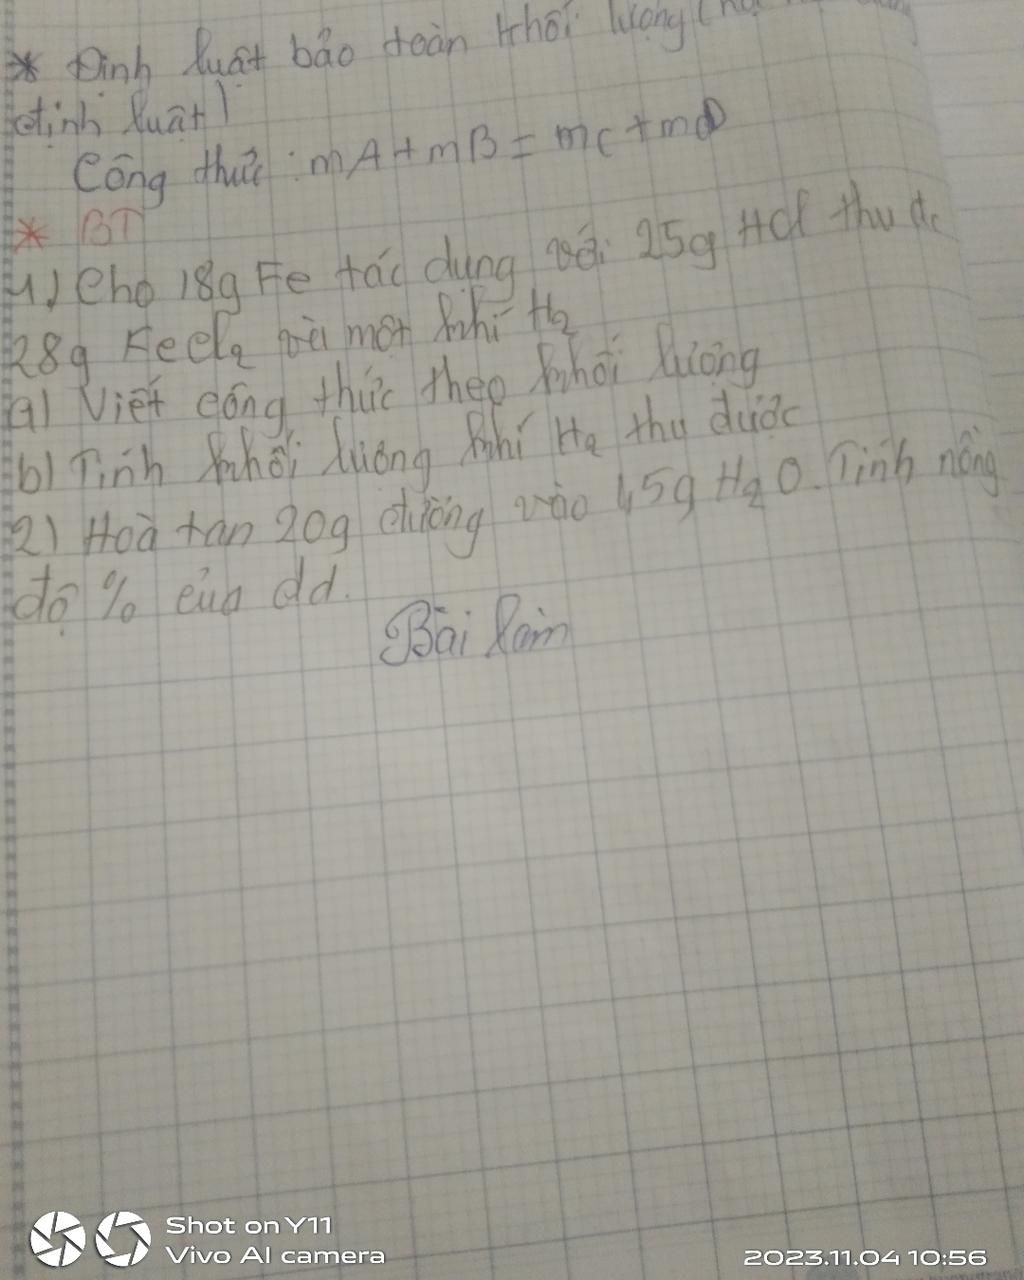 * Định luật bảo toàn khối lượng (
định luật)
Công thức: mA + mB = mC + mD
* BT
1) Cho 18g Fe tác dụng với 25g HCl thu đc
28g FeCl2 và một khí H2
a) Viết công thức theo khối lượng
b) Tính khối lượng khí H2 thu được
2) Hoà tan 20g đường vào 45g H2O. Tính nồng
độ % của dd.
Bài làm
Shot on Y11
Vivo AI camera
2023.11.04 10:56